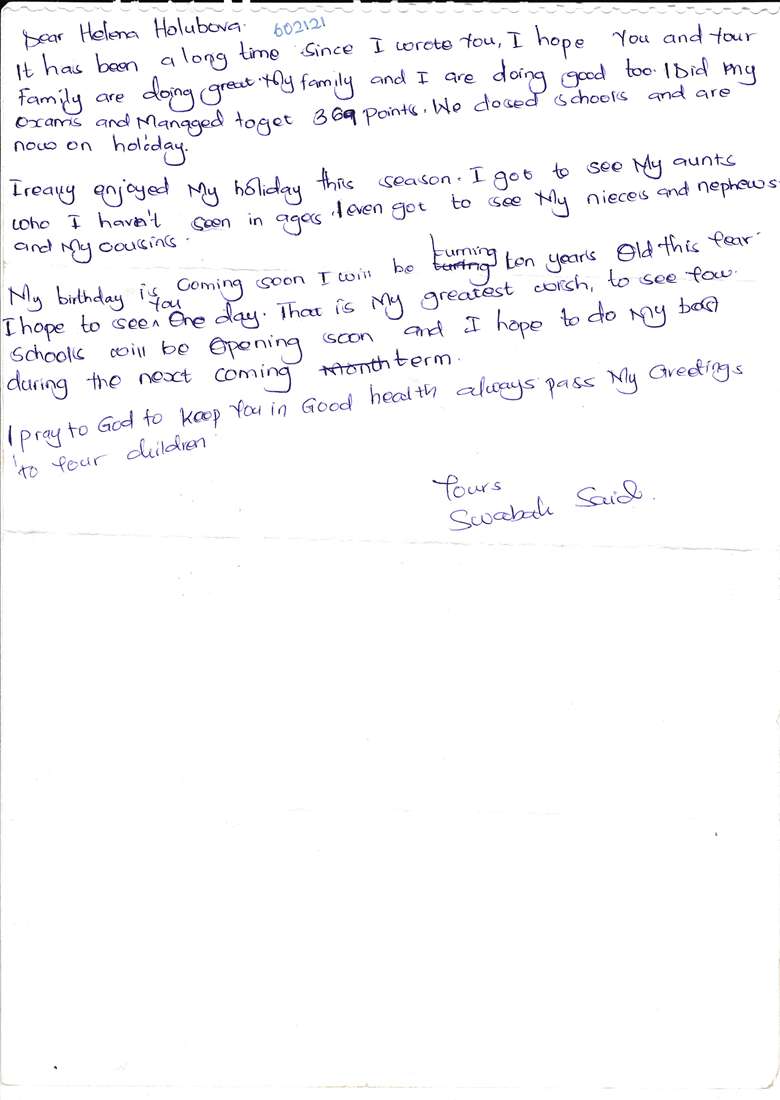 Dear Helena Holubova. 602121
It has been a long time since I wrote You, I hope You and Your
family are doing great. My family and I are doing good too. I Did my
exams and Managed to get 369 points. We closed schools and are
now on holiday.
I really enjoyed My holiday this season. I got to see My aunts
who I haven't seen in ages. I even got to see My nieces and nephews
and My cousins.
My birthday is coming soon I will be turning ten years Old this Year.
I hope to see You One day. That is My greatest wish, to see You.
Schools will be Opening soon and I hope to do My best
during the next coming month term.
I pray to God to keep You in Good health always pass My Greetings
to Your children
Yours
Swabah Said.